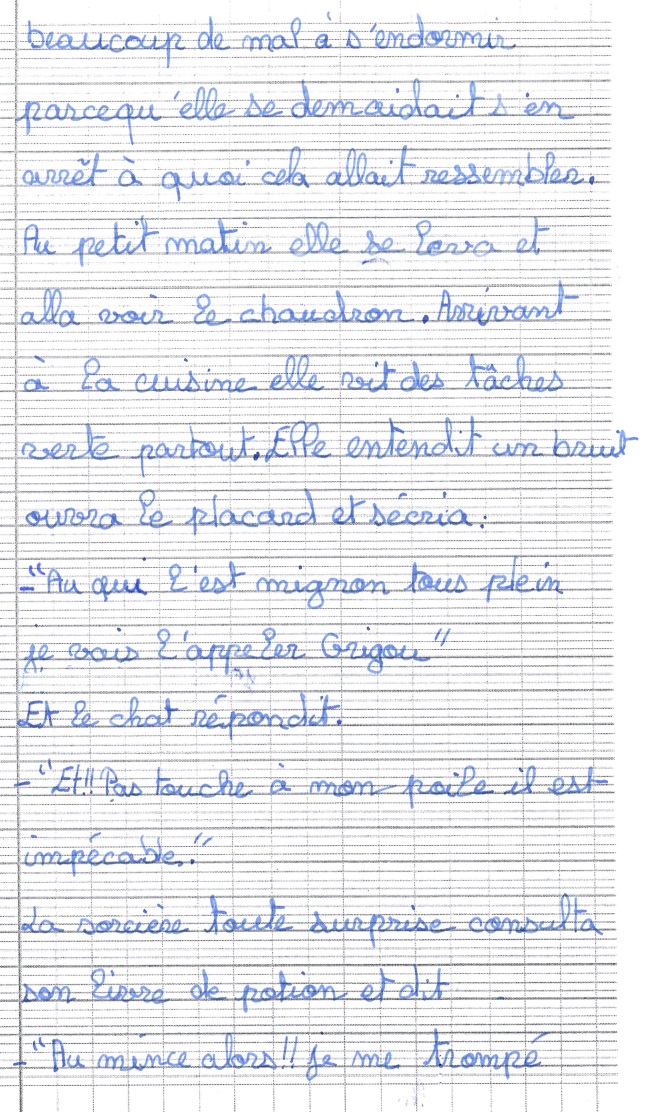 beaucoup de mal à s'endormir
parcequ'elle se demaidait s'en
arrêt à quoi cela allait ressembler.
Au petit matin elle se leva et
alla voir le chaudron. Arrivant
à la cuisine elle vit des tâches
verte partout. Elle entendit un bruit
ouvra le placard et sécria :
-"Au qui l'est mignon tous plein
je vais l'appeler Grigou"
Et le chat répondit.
-"Et!! Pas touche à mon poile il est
impécable."
La sorcière toute surprise consulta
son livre de potion et dit
-"Au mince alors!! je me trompé